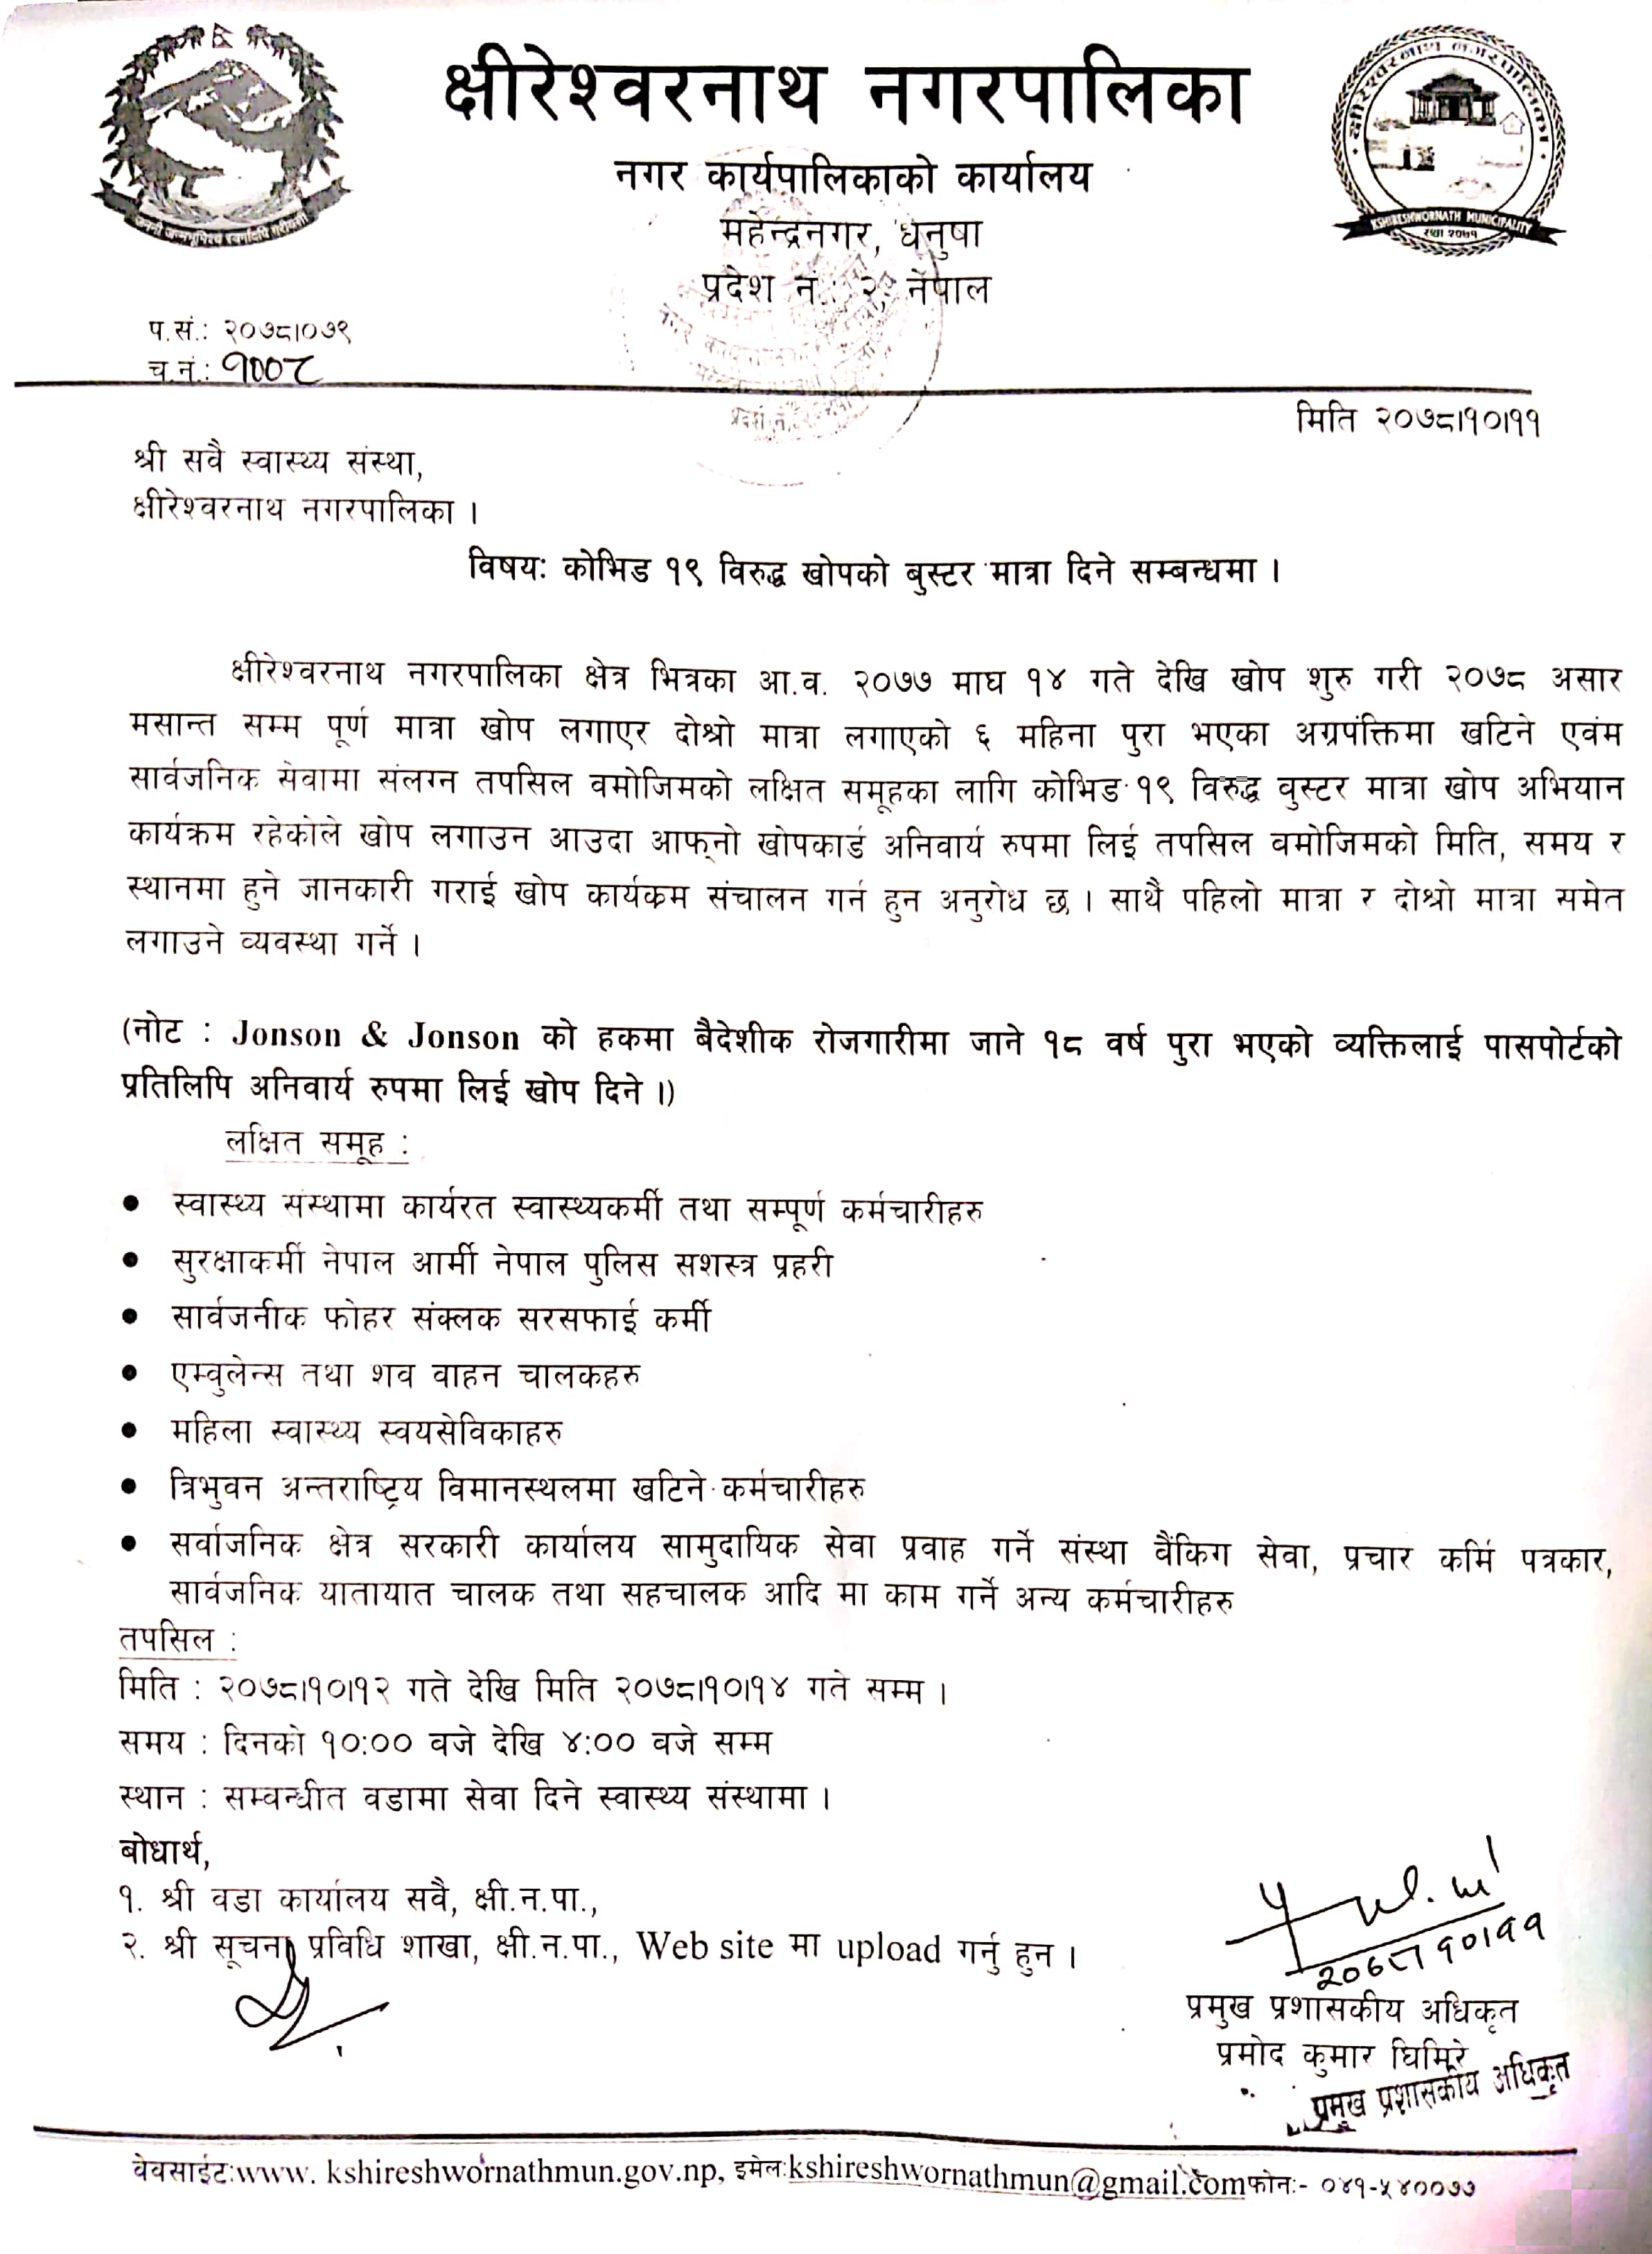 क्षीरेश्वरनाथ नगरपालिका
नगर कार्यपालिकाको कार्यालय
महेन्द्रनगर, धनुषा
प्रदेश नं.: २, नेपाल
क्षीरेश्वरनाथ नगरपालिका
KSHIRESHWORNATH MUNICIPALITY
स्था २०७१
प.सं.: २०७८।०७९
च.नं.: १००८
मिति २०७८।१०।११
श्री सवै स्वास्थ्य संस्था,
क्षीरेश्वरनाथ नगरपालिका ।
विषयः कोभिड १९ विरुद्ध खोपको बुस्टर मात्रा दिने सम्बन्धमा ।
क्षीरेश्वरनाथ नगरपालिका क्षेत्र भित्रका आ.व. २०७७ माघ १४ गते देखि खोप शुरु गरी २०७८ असार
मसान्त सम्म पूर्ण मात्रा खोप लगाएर दोश्रो मात्रा लगाएको ६ महिना पुरा भएका अग्रपंक्तिमा खटिने एवंम
सार्वजनिक सेवामा संलग्न तपसिल वमोजिमको लक्षित समूहका लागि कोभिड १९ विरुद्ध वुस्टर मात्रा खोप अभियान
कार्यक्रम रहेकोले खोप लगाउन आउदा आफ्नो खोपकार्ड अनिवार्य रुपमा लिई तपसिल वमोजिमको मिति, समय र
स्थानमा हुने जानकारी गराई खोप कार्यक्रम संचालन गर्न हुन अनुरोध छ । साथै पहिलो मात्रा र दोश्रो मात्रा समेत
लगाउने व्यवस्था गर्ने ।
(नोट : Jonson & Jonson को हकमा बैदेशीक रोजगारीमा जाने १८ वर्ष पुरा भएको व्यक्तिलाई पासपोर्टको
प्रतिलिपि अनिवार्य रुपमा लिई खोप दिने ।)
लक्षित समूह :
• स्वास्थ्य संस्थामा कार्यरत स्वास्थ्यकर्मी तथा सम्पूर्ण कर्मचारीहरु
• सुरक्षाकर्मी नेपाल आर्मी नेपाल पुलिस सशस्त्र प्रहरी
• सार्वजनीक फोहर संक्लक सरसफाई कर्मी
• एम्वुलेन्स तथा शव वाहन चालकहरु
• महिला स्वास्थ्य स्वयसेविकाहरु
• त्रिभुवन अन्तराष्ट्रिय विमानस्थलमा खटिने कर्मचारीहरु
• सर्वाजनिक क्षेत्र सरकारी कार्यालय सामुदायिक सेवा प्रवाह गर्ने संस्था वैंकिग सेवा, प्रचार कर्मि पत्रकार,
सार्वजनिक यातायात चालक तथा सहचालक आदि मा काम गर्ने अन्य कर्मचारीहरु
तपसिल :
मिति : २०७८।१०।१२ गते देखि मिति २०७८।१०।१४ गते सम्म ।
समय : दिनको १०:०० वजे देखि ४:०० वजे सम्म
स्थान : सम्वन्धीत वडामा सेवा दिने स्वास्थ्य संस्थामा ।
बोधार्थ,
१. श्री वडा कार्यालय सवै, क्षी.न.पा.,
२. श्री सूचना प्रविधि शाखा, क्षी.न.पा., Web site मा upload गर्नु हुन ।
२०७८।१०।११
प्रमुख प्रशासकीय अधिकृत
प्रमोद कुमार घिमिरे
प्रमुख प्रशासकीय अधिकृत
वेवसाईटः www. kshireshwornathmun.gov.np, इमेलः kshireshwornathmun@gmail.com फोनः- ०४१-५४००७७